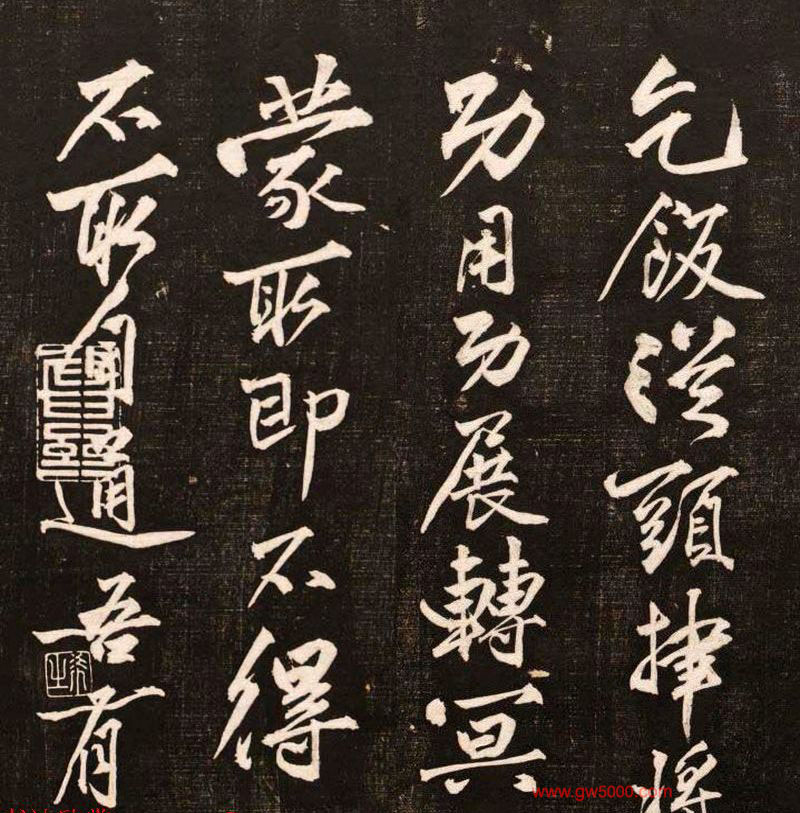 乞飯從頭將
功用功展轉冥
蒙取即不得
不取自通吾有
www.gw5000.com